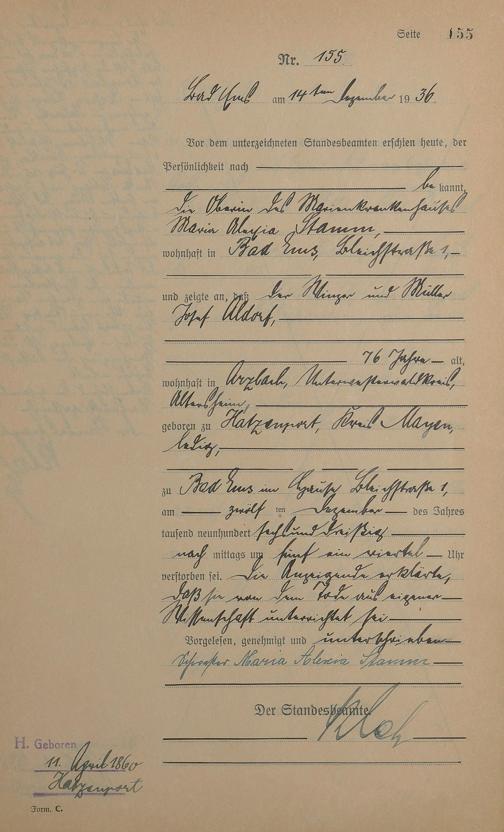 Seite 155
Nr. 155
Bad Ems am 14ten Dezember 1936.
Vor dem unterzeichneten Standesbeamten erschien heute, der
Persönlichkeit nach
be kannt,
die Oberin des Marienkrankenhauses
Maria Alexia Stamm,
wohnhaft in Bad Ems, Bleichstraße 1,
und zeigte an, daß der Winzer und Müller
Josef Aldorf,
76 Jahre alt,
wohnhaft in Arzbach, Unterwesterwaldkreis,
Altersheim,
geboren zu Hatzenport, Kreis Mayen,
ledig,
zu Bad Ems im Hause Bleichstraße 1,
am zwölf ten Dezember des Jahres
tausend neunhundert sechsunddreißig
nach mittags um fünf ein viertel Uhr
verstorben sei. Die Anzeigende erklärte,
daß sie von dem Tode aus eigener
Wissenschaft unterrichtet sei
Vorgelesen, genehmigt und unterschrieben
Schwester Maria Alexia Stamm
Der Standesbeamte
H. Geboren
11. April 1860
Hatzenport
Form. C.